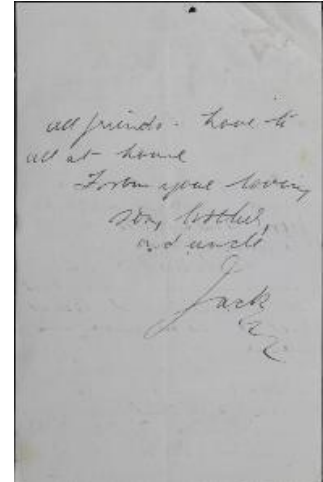 all friends. Love to
all at home
From your loving
son, brother,
and uncle
Jack